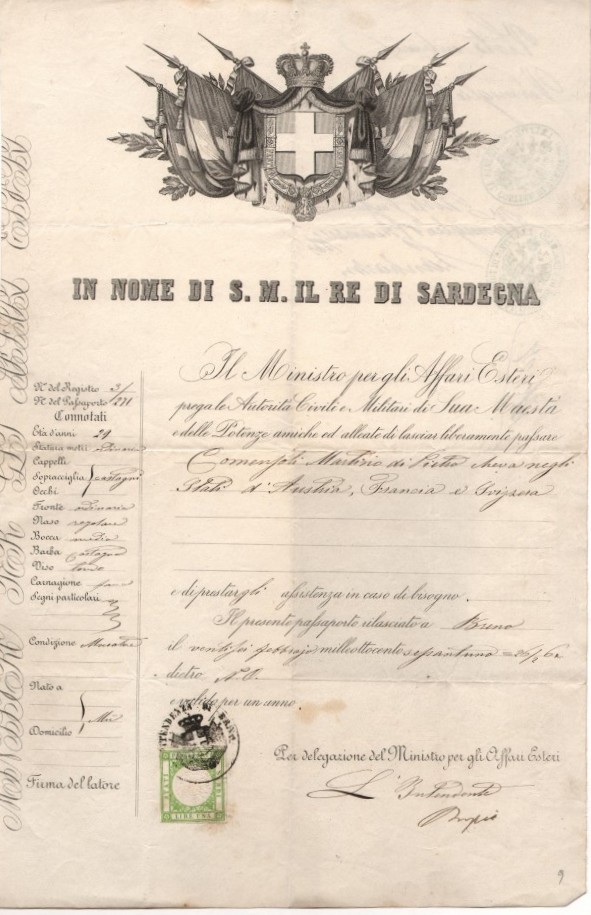 IN NOME DI S. M. IL RE DI SARDEGNA
Il Ministro per gli Affari Esteri
prega le Autorità Civili e Militari di Sua Maestà
e delle Potenze amiche ed alleate di lasciar liberamente passare
di Pietro che va negli
Stati d'Austria, Francia e Svizzera
e di prestargli assistenza in caso di bisogno.
Il presente passaporto rilasciato a Breno
il ventisei febbrajo mille ottocento sessantuno = 26/2 61
dietro N.O.
e valido per un anno.
Per delegazione del Ministro per gli Affari Esteri
L'Intendente
N.º del Registro 3/
N. del Passaporto 271
Connotati
Età d'anni 29
Statura metri
Capelli
Sopracciglia castagni
Occhi
Fronte ordinaria
Naso regolare
Bocca media
Barba castagna
Viso tondo
Carnagione
Segni particolari
Condizione Muratore
Nato a
Domicilio
Firma del latore
STATI
LIRE UNA
9